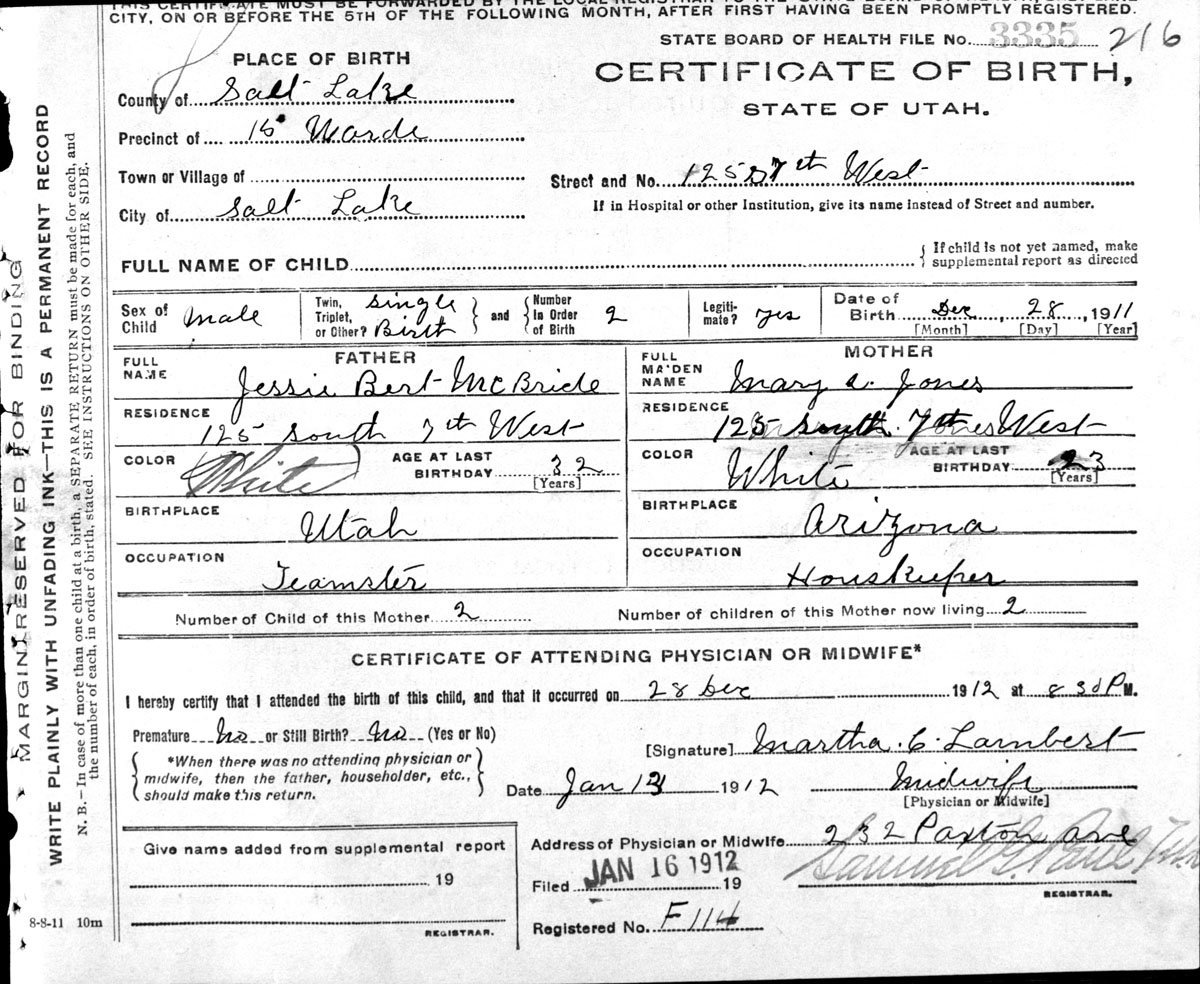 THIS CERTIFICATE MUST BE FORWARDED BY THE LOCAL REGISTRAR TO THE STATE BOARD OF HEALTH, SALT LAKE
CITY, ON OR BEFORE THE 5TH OF THE FOLLOWING MONTH, AFTER FIRST HAVING BEEN PROMPTLY REGISTERED.
STATE BOARD OF HEALTH FILE No. 3335 216
PLACE OF BIRTH
CERTIFICATE OF BIRTH,
STATE OF UTAH.
County of Salt Lake
Precinct of 15 Warde
Town or Village of
Street and No. 125 S 7th West
City of Salt Lake
If in Hospital or other Institution, give its name instead of Street and number.
FULL NAME OF CHILD
{ If child is not yet named, make supplemental report as directed
Sex of Child Male
Twin, Triplet, or Other? Single Birth
and { Number in Order of Birth 2
Legitimate? yes
Date of Birth Dec 28, 1911
[Month] [Day] [Year]
FATHER
FULL NAME Jessie Bert McBride
RESIDENCE 125 South 7th West
COLOR White AGE AT LAST BIRTHDAY 32
[Years]
BIRTHPLACE Utah
OCCUPATION Teamster
MOTHER
FULL MAIDEN NAME Mary E. Jones
RESIDENCE 125 South 7th West
COLOR White AGE AT LAST BIRTHDAY 23
[Years]
BIRTHPLACE Arizona
OCCUPATION Houskeeper
Number of Child of this Mother 2 Number of children of this Mother now living 2
CERTIFICATE OF ATTENDING PHYSICIAN OR MIDWIFE*
I hereby certify that I attended the birth of this child, and that it occurred on 28 Dec 1912 at 8 30 P M.
Premature No or Still Birth? No (Yes or No)
{ *When there was no attending physician or midwife, then the father, householder, etc., should make this return. }
[Signature] Martha C. Lambert
Date Jan 13 1912 Midwife
[Physician or Midwife]
Address of Physician or Midwife 232 Paxton Ave
Filed JAN 16 1912 19
Samuel G. Paul
REGISTRAR.
Registered No. F114
Give name added from supplemental report
19
REGISTRAR.
8-8-11 10m
MARGIN RESERVED FOR BINDING
WRITE PLAINLY WITH UNFADING INK—THIS IS A PERMANENT RECORD
N. B.—In case of more than one child at a birth, a SEPARATE RETURN must be made for each, and
the number of each, in order of birth, stated. SEE INSTRUCTIONS ON OTHER SIDE.